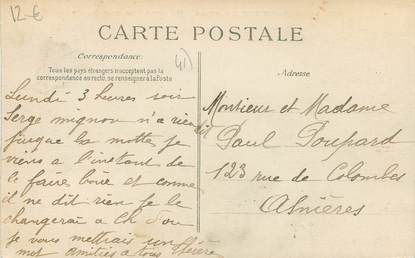 12 €
CARTE POSTALE
Correspondance
Tous les pays étrangers n'acceptent pas la
correspondance au recto, se renseigner à la Poste
(41)
Adresse
Lundi 3 heures soir
Serge mignon n'a rien dit
jusque la motte je
viens a l'instant de
le faire boire et comme
il ne dit rien je le
changerai a 4h
je vous mettrais un
mot amitiés a tous
Monsieur et Madame
Paul Poupard
123 rue de Colombes
Asnières